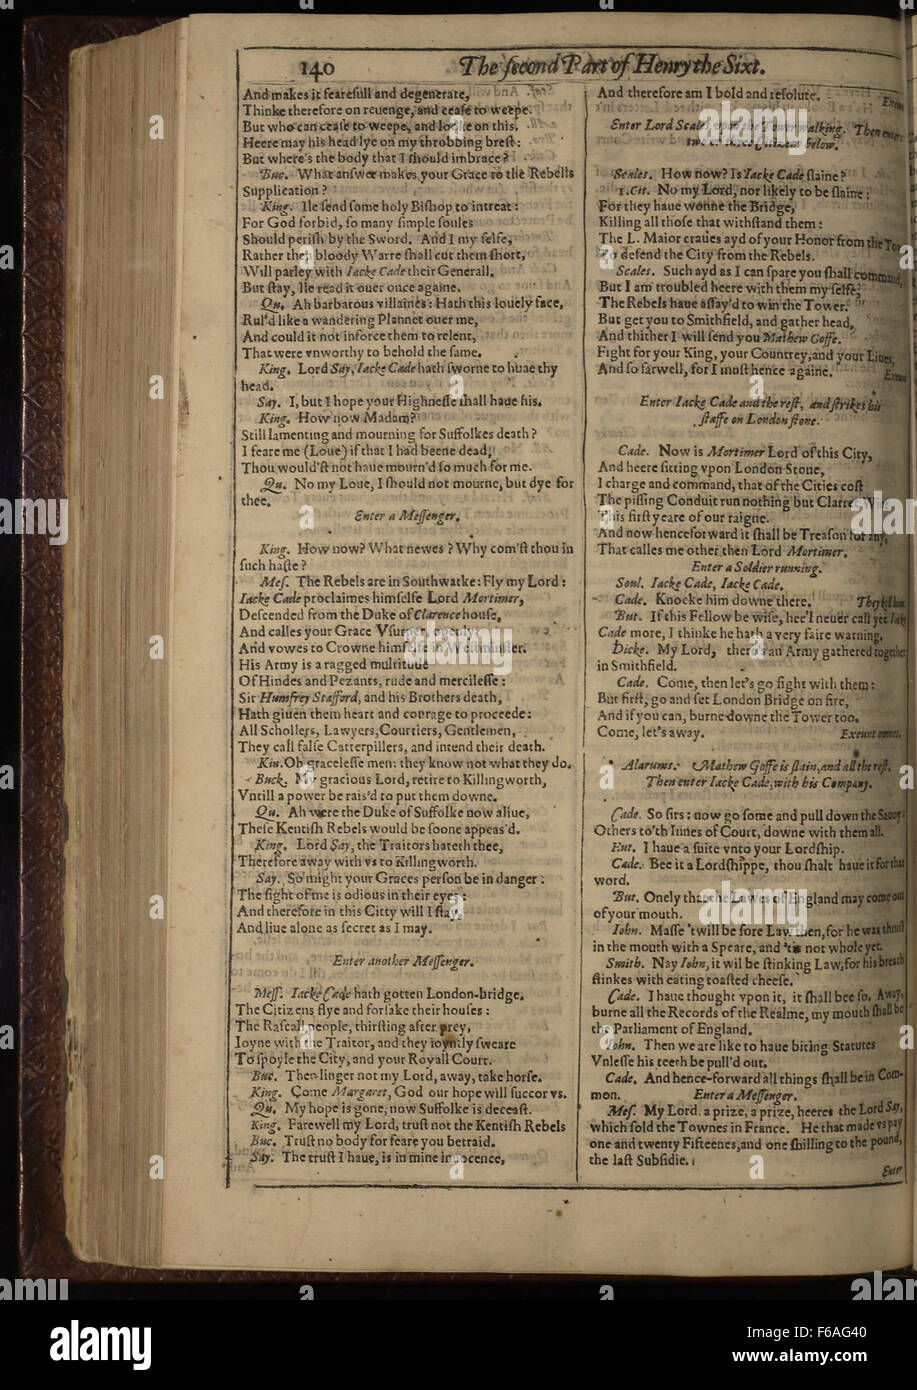 140
The second Part of Henry the Sixt.
And makes it fearefull and degenerate,
Thinke therefore on reuenge, and cease to weepe.
But who can cease to weepe, and looke on this.
Heere may his head lye on my throbbing brest:
But where's the body that I should imbrace?
Buc. What answer makes your Grace to the Rebells
Supplication?
King. Ile send some holy Bishop to intreat:
For God forbid, so many simple soules
Should perish by the Sword. And I my selfe,
Rather then bloody Warre shall cut them short,
Will parley with Iacke Cade their Generall.
But stay, Ile read it ouer once againe.
Qu. Ah barbarous villaines: Hath this louely face,
Rul'd like a wandering Plannet ouer me,
And could it not inforce them to relent,
That were vnworthy to behold the same.
King. Lord Say, Iacke Cade hath sworne to huae thy
head.
Say. I, but I hope your Highnesse shall haue his.
King. How now Madam?
Still lamenting and mourning for Suffolkes death?
I feare me (Loue) if that I had beene dead,
Thou would'st not haue mourn'd so much for me.
Qu. No my Loue, I should not mourne, but dye for
thee.
Enter a Messenger.
King. How now? What newes? Why com'st thou in
such haste?
Mes. The Rebels are in Southwarke: Fly my Lord:
Iacke Cade proclaimes himselfe Lord Mortimer,
Descended from the Duke of Clarence house,
And calles your Grace Vsurper, openly,
And vowes to Crowne himselfe in Westminster.
His Army is a ragged multitude
Of Hindes and Pezants, rude and mercilesse:
Sir Humfrey Stafford, and his Brothers death,
Hath giuen them heart and courage to proceede:
All Schollers, Lawyers, Courtiers, Gentlemen,
They call false Catterpillers, and intend their death.
Kin. Oh gracelesse men: they know not what they do.
Buck. My gracious Lord, retire to Killingworth,
Vntill a power be rais'd to put them downe.
Qu. Ah were the Duke of Suffolke now aliue,
These Kentish Rebels would be soone appeas'd.
King. Lord Say, the Traitors hateth thee,
Therefore away with vs to Killingworth.
Say. So might your Graces person be in danger:
The sight of me is odious in their eyes:
And therefore in this Citty will I stay,
And liue alone as secret as I may.
Enter another Messenger.
Mess. Iacke Cade hath gotten London-bridge.
The Citizens flye and forsake their houses:
The Rascall people, thirsting after prey,
Ioyne with the Traitor, and they ioyntly sweare
To spoyle the City, and your Royall Court.
Buc. Then linger not my Lord, away, take horse.
King. Come Margaret, God our hope will succor vs.
Qu. My hope is gone, now Suffolke is deceast.
King. Farewell my Lord, trust not the Kentish Rebels
Buc. Trust no body for feare you betraid.
Say. The trust I haue, is in mine innocence,
And therefore am I bold and resolute.
Exeunt
Enter Lord Scales vpon the Tower walking. Then enter
two or three Citizens below.
Scales. How now? Is Iacke Cade slaine?
1. Cit. No my Lord, nor likely to be slaine:
For they haue wonne the Bridge,
Killing all those that withstand them:
The L. Maior craues ayd of your Honor from the Tower
To defend the City from the Rebels.
Scales. Such ayd as I can spare you shall command,
But I am troubled heere with them my selfe,
The Rebels haue assay'd to win the Tower.
But get you to Smithfield, and gather head,
And thither I will send you Mathew Goffe.
Fight for your King, your Countrey, and your Liues,
And so farwell, for I must hence againe.
Exeunt
Enter Iacke Cade and the rest, and strikes his
staffe on London stone.
Cade. Now is Mortimer Lord of this City,
And heere sitting vpon London Stone,
I charge and command, that of the Cities cost
The pissing Conduit run nothing but Clarret Wi
This first yeare of our raigne.
And now henceforward it shall be Treason for any,
That calles me other then Lord Mortimer.
Enter a Soldier running.
Soul. Iacke Cade, Iacke Cade.
Cade. Knocke him downe there.
They kill him.
But. If this Fellow be wise, hee'l neuer call yee Iacke
Cade more, I thinke he hath a very faire warning.
Dicke. My Lord, there's an Army gathered together
in Smithfield.
Cade. Come, then let's go fight with them:
But first, go and set London Bridge on fire,
And if you can, burne downe the Tower too.
Come, let's away.
Exeunt omnes.
Alarums. Mathew Goffe is slain, and all the rest.
Then enter Iacke Cade, with his Company.
Cade. So sirs: now go some and pull down the Sauoy:
Others to'th Innes of Court, downe with them all.
But. I haue a suite vnto your Lordship.
Cade. Bee it a Lordshippe, thou shalt haue it for that
word.
But. Onely that the Lawes of England may come out
of your mouth.
Iohn. Masse 'twill be sore Law then, for he was thrust
in the mouth with a Speare, and 'tis not whole yet.
Smith. Nay Iohn, it wil be stinking Law, for his breath
stinkes with eating toasted cheese.
Cade. I haue thought vpon it, it shall bee so. Away,
burne all the Records of the Realme, my mouth shall be
the Parliament of England.
Iohn. Then we are like to haue biting Statutes
Vnlesse his teeth be pull'd out.
Cade. And hence-forward all things shall be in Com-
mon. Enter a Messenger.
Mes. My Lord, a prize, a prize, heeres the Lord Say,
which sold the Townes in France. He that made vs pay
one and twenty Fifteenes, and one shilling to the pound,
the last Subsidie.
Enter
alamy
Image ID: F6AG40
www.alamy.com